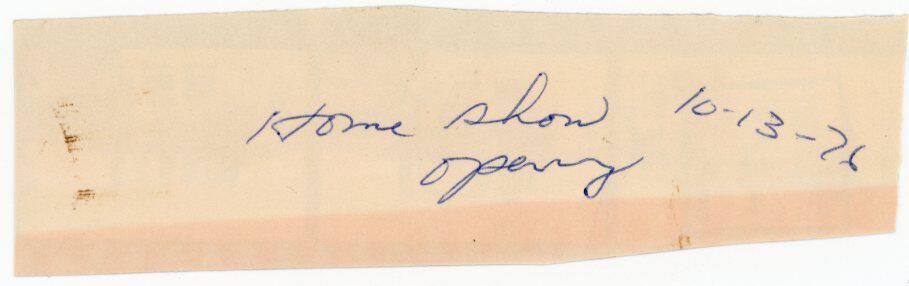 Home show 10-13-76
opening